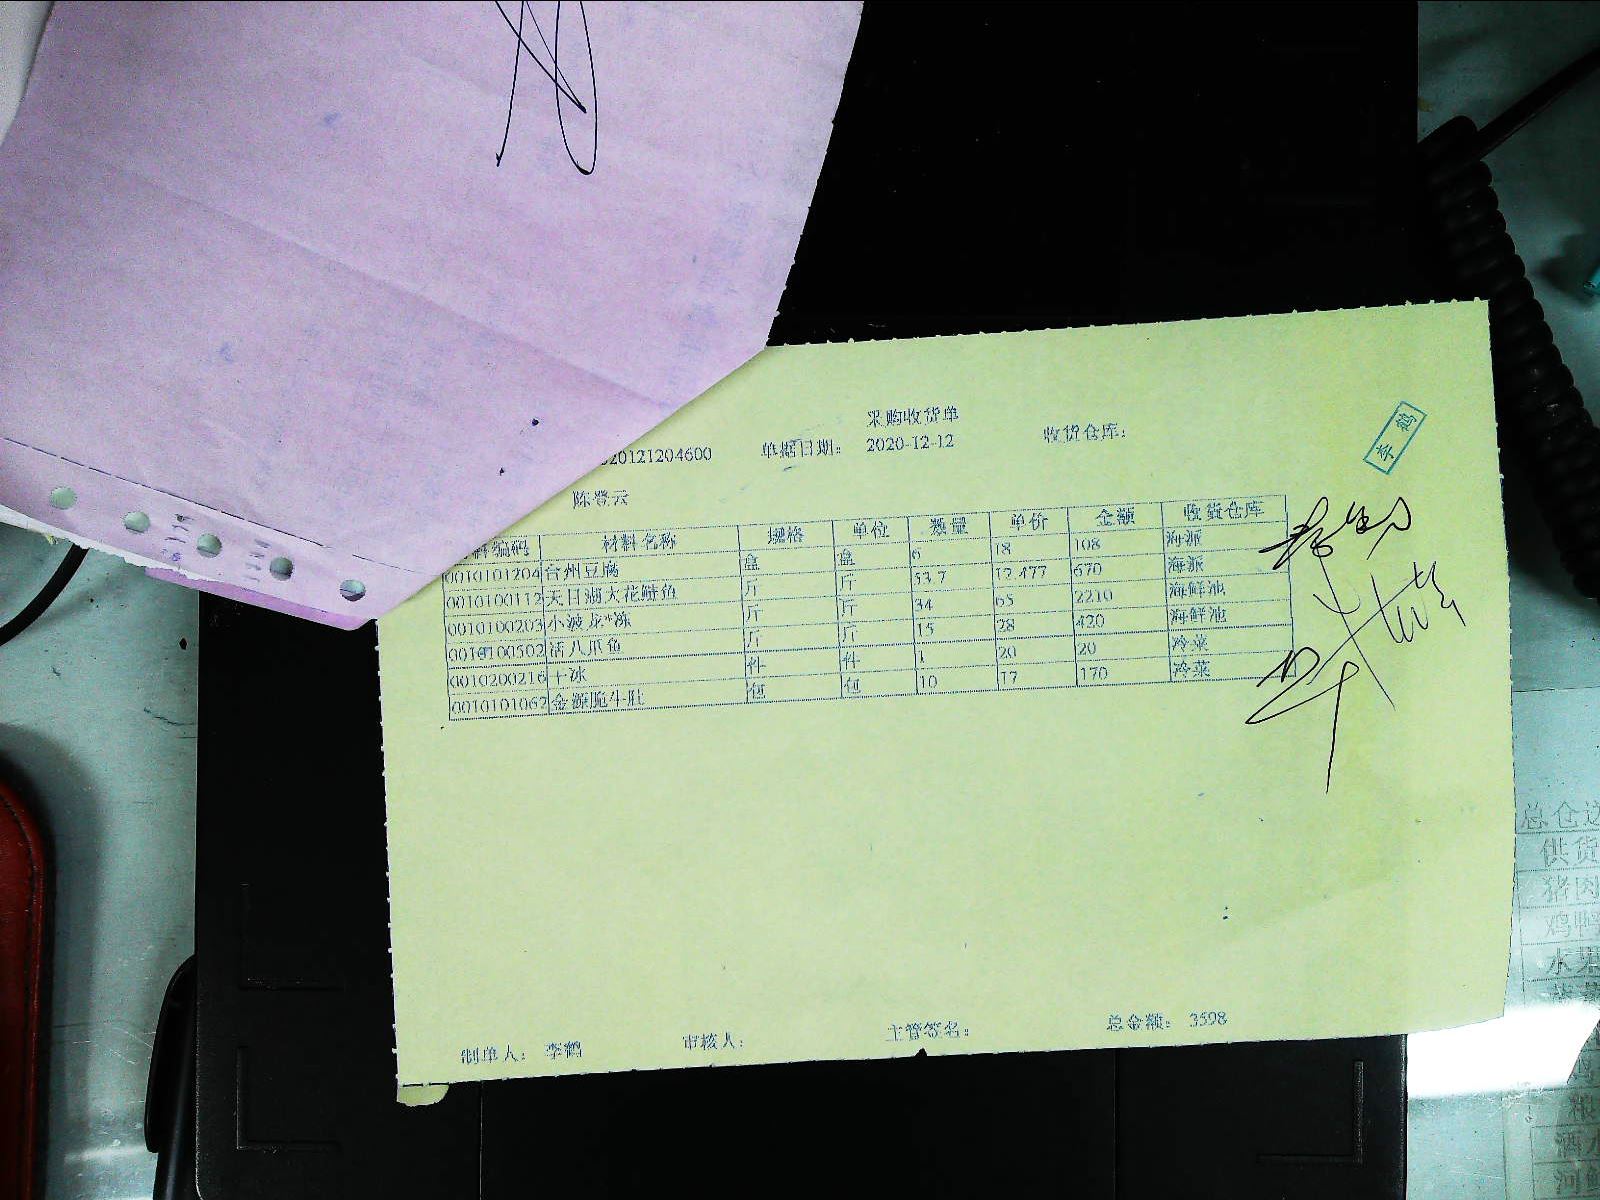 采购收货单
20121204600 单据日期: 2020-12-12 收货仓库:
李鹤
陈登云
料编码 材料名称 规格 单位 数量 单价 金额 收货仓库
0010101204 台州豆腐 盒 盒 6 18 108 海派
0010100112 天目湖大花鲢鱼 斤 斤 53.7 12.477 670 海派
0010100203 小波龙*冻 斤 斤 34 65 2210 海鲜池
0010100502 活八爪鱼 斤 斤 15 28 420 海鲜池
0010200216 干冰 件 件 1 20 20 冷菜
0010101062 金源脆牛肚 包 包 10 17 170 冷菜
制单人: 李鹤 审核人: 主管签名: 总金额: 3598
总仓
供货
猪肉
鸡鸭
水果
酒水